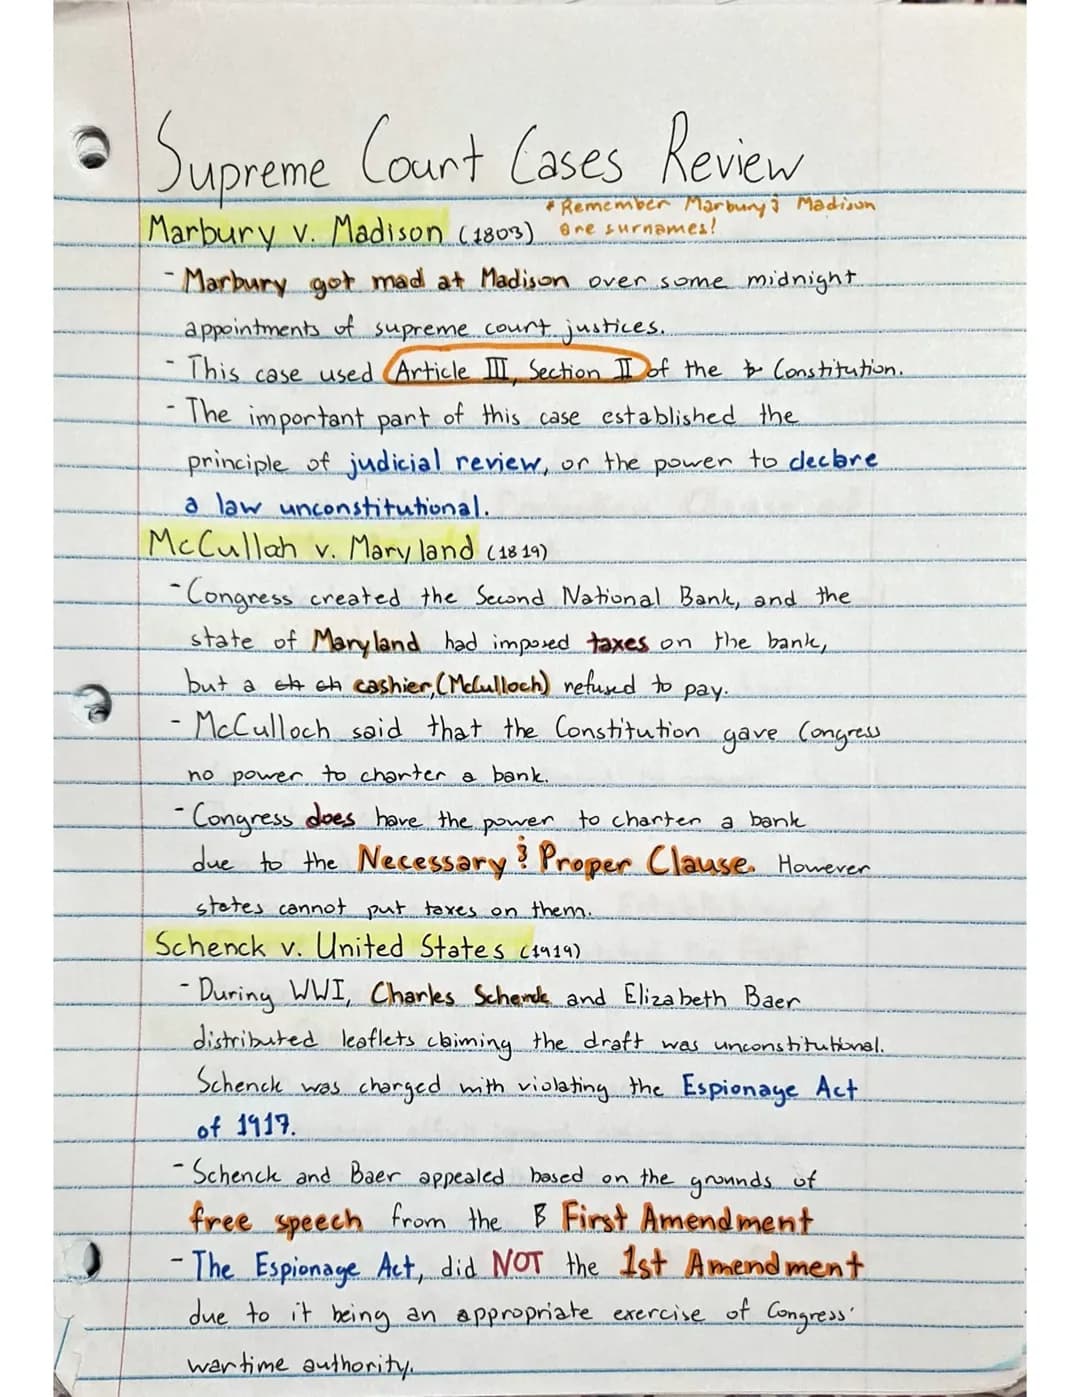 Supreme Court Cases Review
* Remember Marbury & Madison
are surnames!
Marbury v. Madison (1803)
- Marbury got mad at Madison over some midnight
appointments of supreme court justices.
- This case used Article III, Section II of the Constitution.
- The important part of this case established the
principle of judicial review, or the power to declare
a law unconstitutional.
McCulloh v. Maryland (1819)
- Congress created the Second National Bank, and the
state of Maryland had imposed taxes on the bank,
but a ch ch cashier, (McCulloch) refused to pay.
- McCulloch said that the Constitution gave Congress
no power to charter a bank.
- Congress does have the power to charter a bank
due to the Necessary & Proper Clause. However
states cannot put taxes on them.
Schenck v. United States (1919)
- During WWI, Charles Schenck and Elizabeth Baer
distributed leaflets claiming the draft was unconstitutional.
Schenck was charged with violating the Espionage Act
of 1917.
- Schenck and Baer appealed based on the grounds of
free speech from the B First Amendment
- The Espionage Act, did NOT the 1st Amendment
due to it being an appropriate exercise of Congress'
wartime authority.